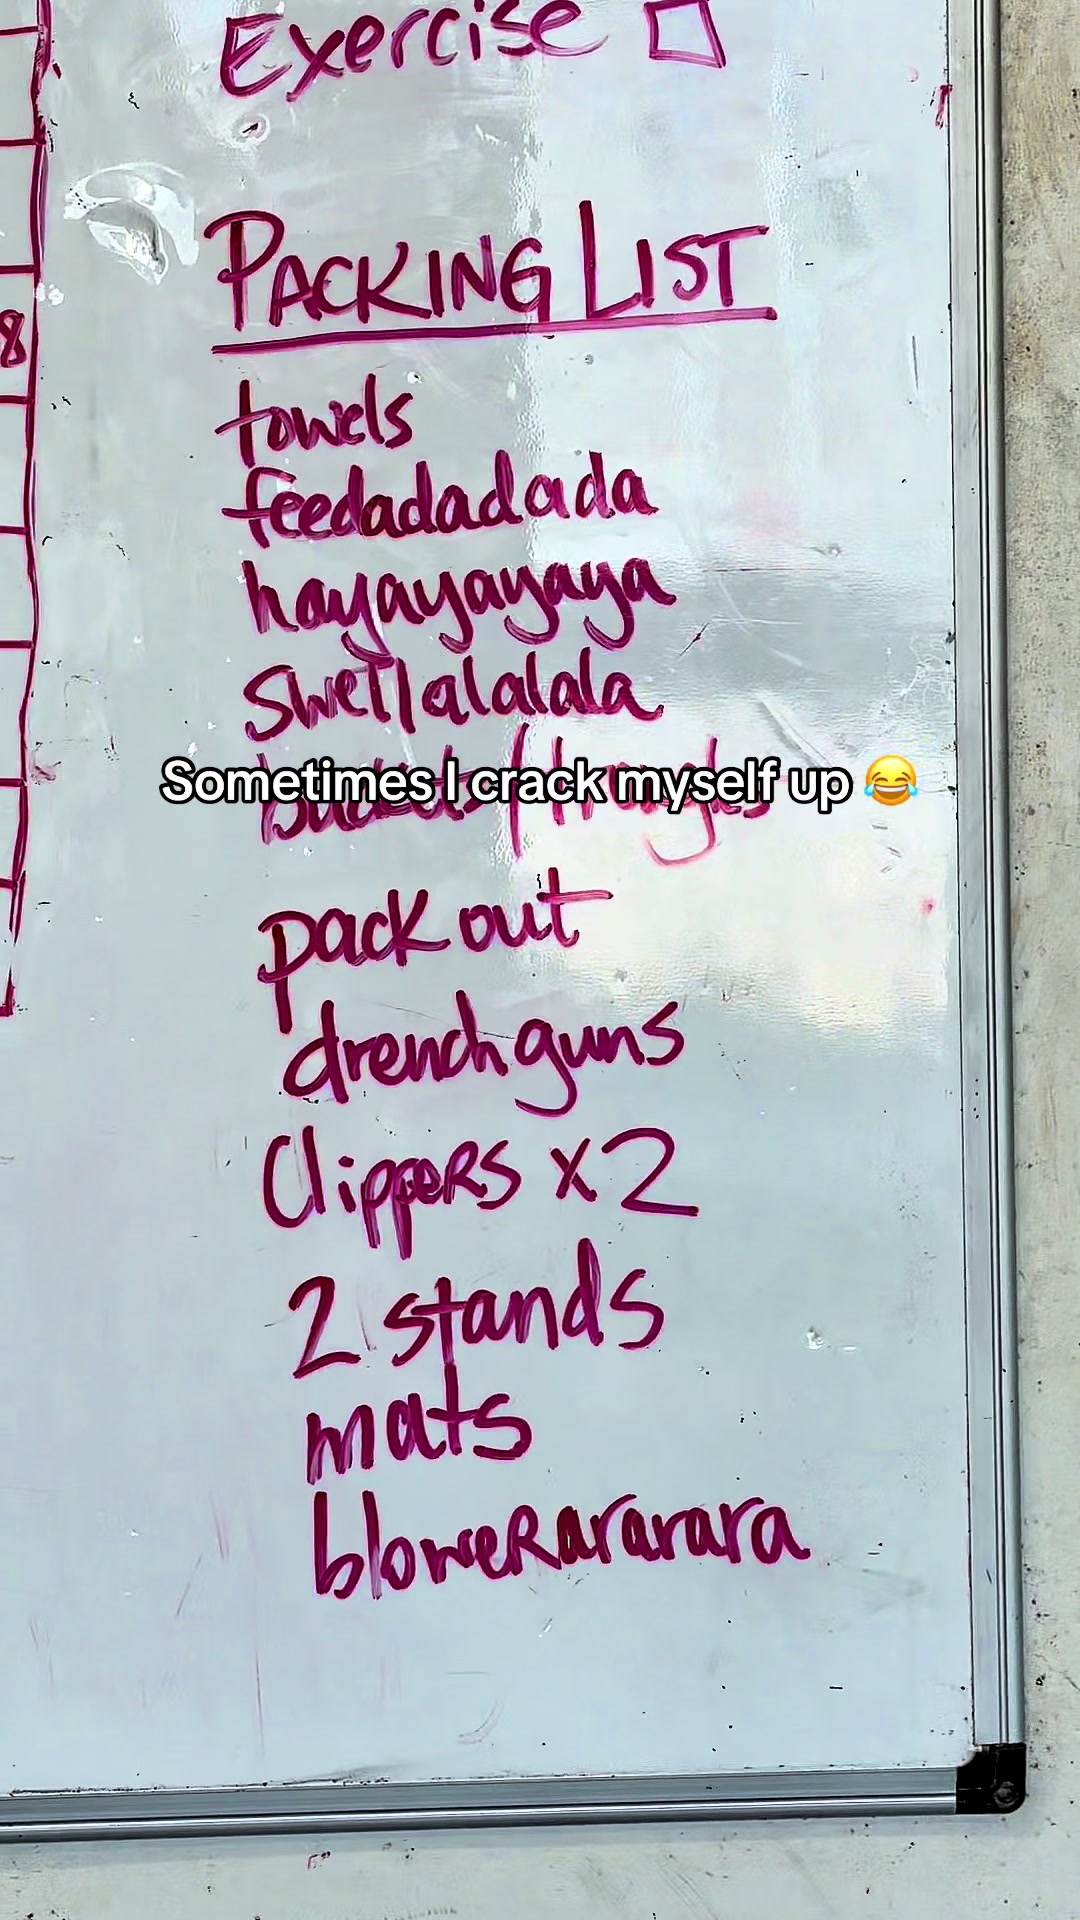 Exercise
8
PACKING LIST
towels
feedadadada
hayayayayaya
Shvellalalala
Sometimes I crack myself up 😂
pack out
drench guns
Clippers x 2
2 stands
mats
bloweRarararara